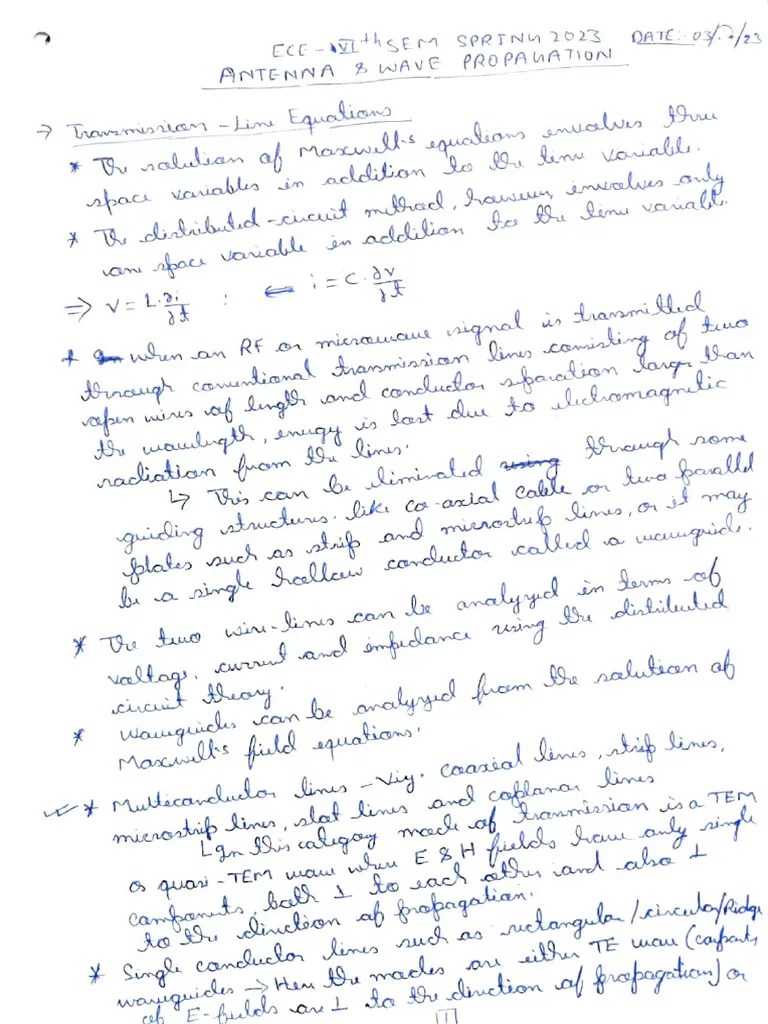 ECE - VIth SEM SPRING 2023 DATE: 03/ /23
ANTENNA & WAVE PROPAGATION
→ Transmission - Line Equations
* The solution of Maxwell's equations envolves three
space variables in addition to the time variable.
* The distributed-circuit method, however, envolves only
one space variable in addition to the time variable.
⇒ V = L.∂i/∂t ; i = C.∂v/∂t
* when an RF or microwave signal is transmitted
through conventional transmission lines consisting of two
open wires of length and conductor separation larger than
the wavelength, energy is lost due to electromagnetic
radiation from the lines.
↳ This can be eliminated through some
guiding structures. like co-axial cable or two parallel
plates such as strip and microstrip lines, or it may
be a single hollow conductor called a waveguide.
* The two wire-lines can be analyzed in terms of
voltage, current and impedance using the distributed
circuit theory.
* Waveguides can be analyzed from the solution of
Maxwell's field equations.
* Multiconductor lines - Viz. coaxial lines, strip lines,
microstrip lines, slot lines and coplanar lines
↳ In this category mode of transmission is a TEM
or quasi-TEM wave when E & H fields have only single
components, both ⊥ to each other and also ⊥
to the direction of propagation.
* Single conductor lines such as rectangular/circular/Ridge
waveguides → Here the modes are either TE wave (
of E-fields are ⊥ to the direction of propagation) or
1